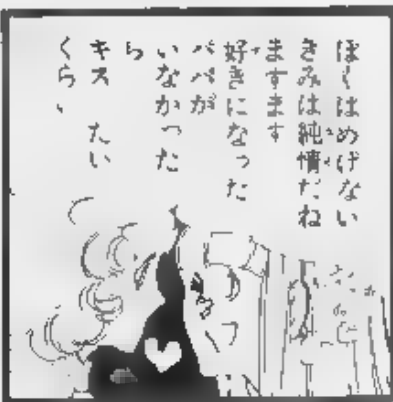 ぼくはめげない
きみは純情だね
ますます
好きになった
パパが
いなかった
ら
キス たい
くら